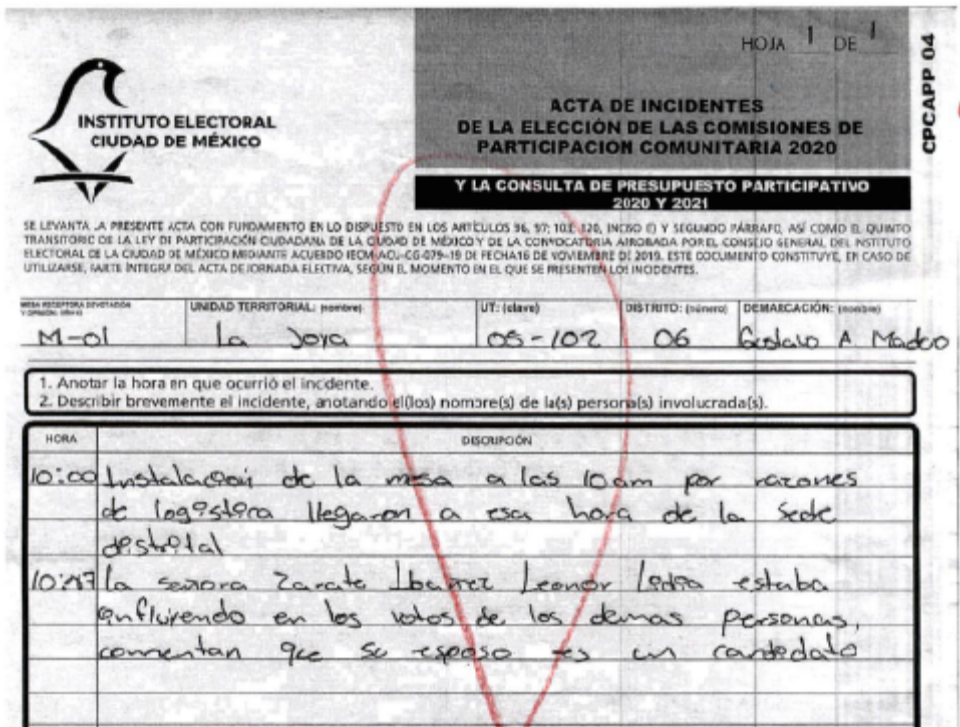 HOJA 1 DE 1
CPCAPP 04
INSTITUTO ELECTORAL
CIUDAD DE MÉXICO
ACTA DE INCIDENTES
DE LA ELECCIÓN DE LAS COMISIONES DE
PARTICIPACIÓN COMUNITARIA 2020
Y LA CONSULTA DE PRESUPUESTO PARTICIPATIVO
2020 Y 2021
SE LEVANTA LA PRESENTE ACTA CON FUNDAMENTO EN LO DISPUESTO EN LOS ARTÍCULOS 96, 97; 120, INCISO Y SEGUNDO PÁRRAFO, ASÍ COMO EL QUINTO
TRANSITORIO DE LA LEY DE PARTICIPACIÓN CIUDADANA DE LA CIUDAD DE MÉXICO Y DE LA CONVOCATORIA APROBADA POR EL CONSEJO GENERAL DEL INSTITUTO
ELECTORAL DE LA CIUDAD DE MÉXICO MEDIANTE ACUERDO IECM-ACU-CG-079-19 DE FECHA 16 DE NOVIEMBRE DE 2019. ESTE DOCUMENTO CONSTITUYE, EN CASO DE
UTILIZARSE, PARTE ÍNTEGRA DEL ACTA DE JORNADA ELECTIVA, SEGÚN EL MOMENTO EN EL QUE SE PRESENTEN LOS INCIDENTES.
MESA RECEPTORA DE VOTACIÓN Y OPINIÓN: UNIDAD TERRITORIAL: (nombre) UT: (clave) DISTRITO: (número) DEMARCACIÓN: (nombre)
M-01 La Joya 05-102 06 Gustavo A Madero
1. Anotar la hora en que ocurrió el incidente.
2. Describir brevemente el incidente, anotando el(los) nombre(s) de la(s) persona(s) involucrada(s).
HORA DESCRIPCIÓN
10:00 Instalacion de la mesa a las 10 am por razones
de logistica llegaron a esa hora de la sede
distrital
10:47 La senora Zarate Ibarrez Leonor Lidia estaba
influirendo en los votos de los demas personas,
commentan que su esposo es un candidato